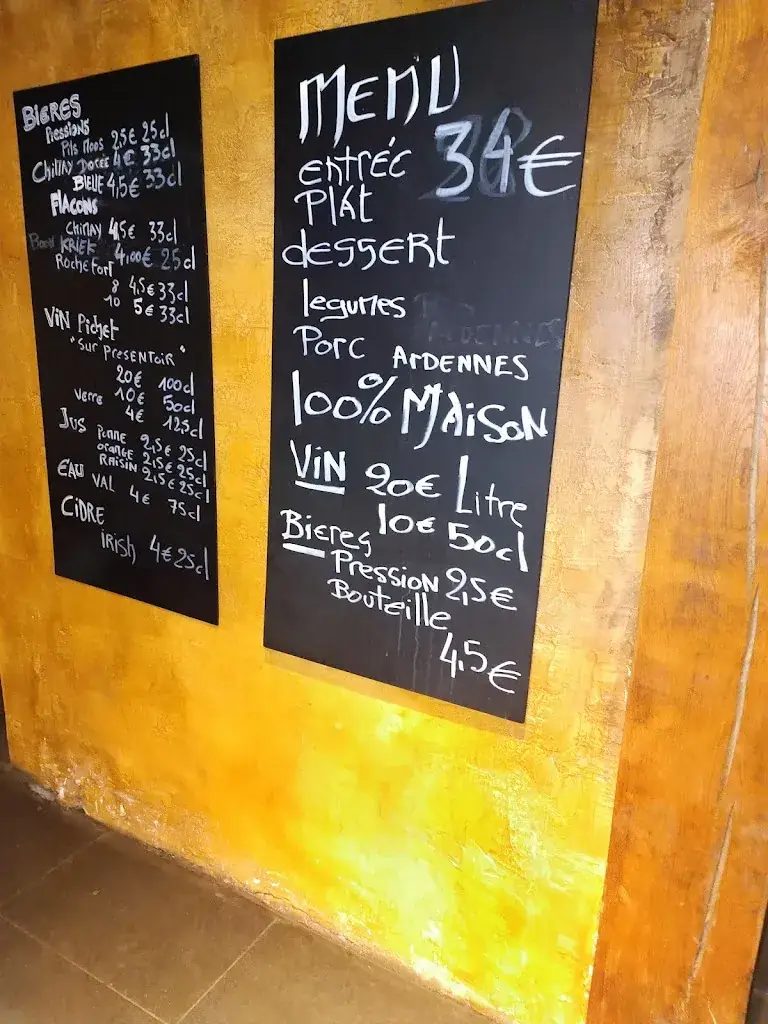 BIERES
Pressions
Pils MOOS 2,5€ 25cl
CHIMAY DOREE 4€ 33cl
BLEUE 4,5€ 33cl
FLACONS
CHIMAY 4,5€ 33cl
KRIEK 4,00€ 25cl
ROCHEFORT
8 4,5€ 33cl
10 5€ 33cl
VIN Pichet
"SUR PRESENTOIR"
20€ 100cl
10€ 50cl
Verre 4€ 12,5cl
JUS POMME 2,5€ 25cl
ORANGE 2,5€ 25cl
RAISIN 2,5€ 25cl
EAU VAL 4€ 75cl
CIDRE
IRISH 4€ 25cl
MENU
entréé 34€
PlAt
dessert
legumes
Porc ArDENNES
100% MAiSON
ViN 20€ Litre
10€ 50cl
Bieres
Pression 2,5€
Bouteille
4,5€